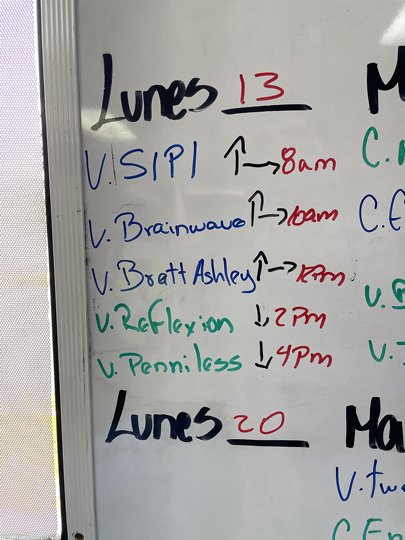 Lunes 13
V. SIPI ↑→ 8am
V. Brainwave ↑→ 10am
V. Bratt Ashley ↑→
V. Reflexion ↓ 2Pm
V. Penniless ↓ 4Pm
Lunes 20
V. tw